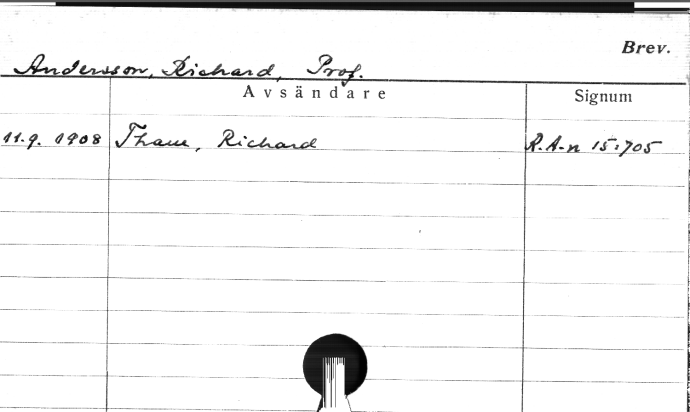 Brev.
Andersson, Richard, Prof.
Avsändare Signum
11.9. 1908 Thaue, Richard R.A-n 15:705